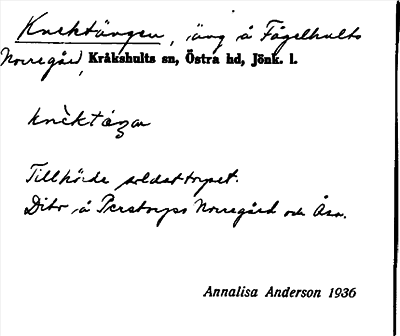 Knektängen, äng å Fågelhults
Norregård, Kråkshults sn, Östra hd, Jönk. l.
knèktáŋa
Tillhörde soldattorpet.
Dito å Perstorps Norregård och Åsa.
Annalisa Anderson 1936